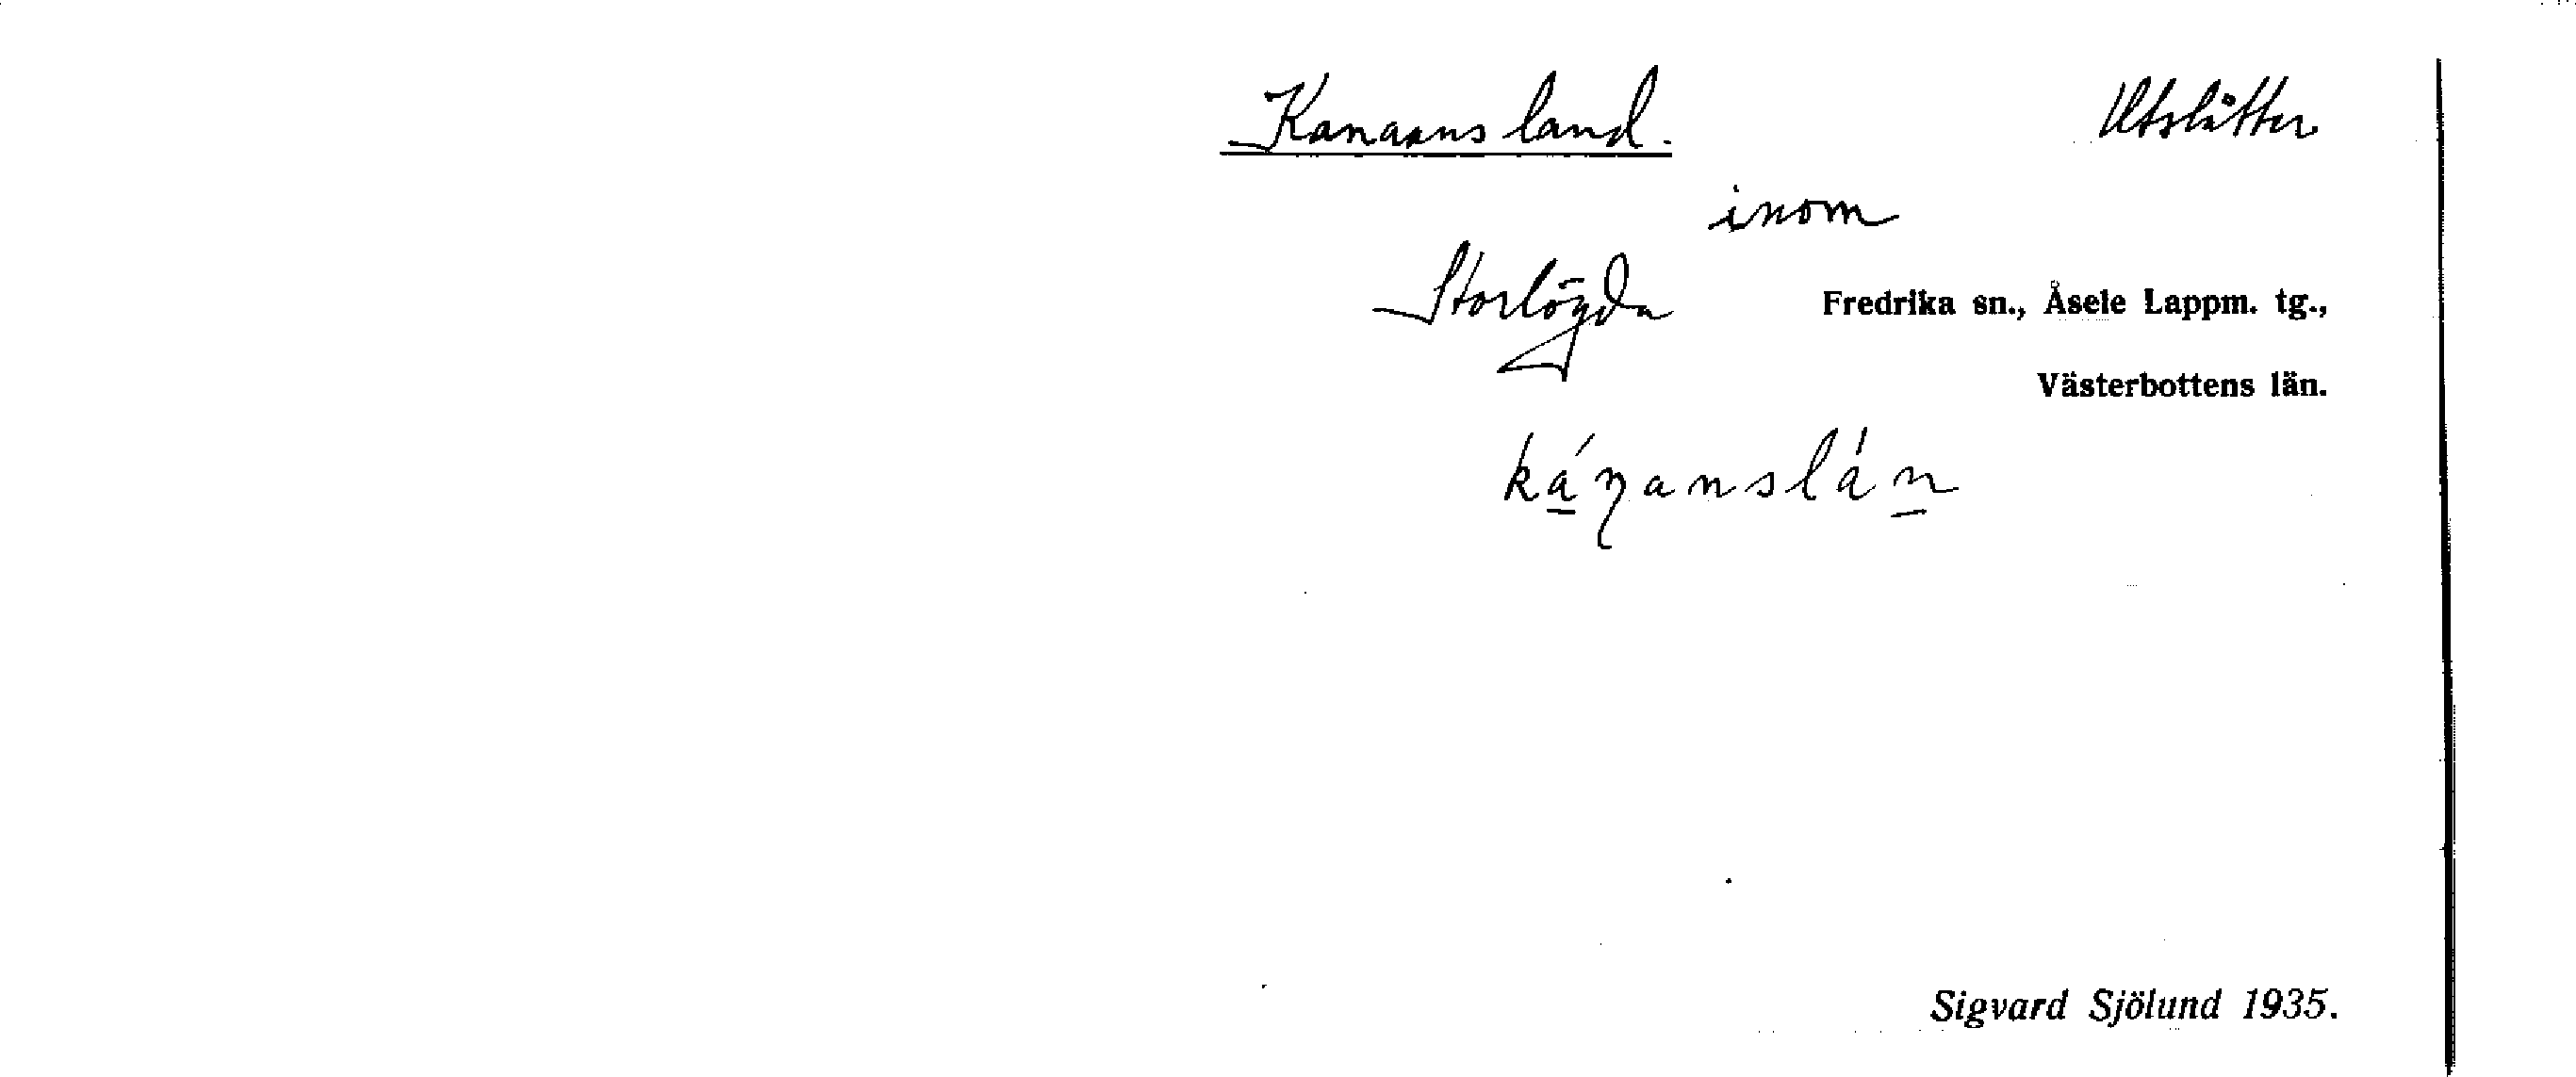 Kanaans land. Utslåtter
inom
Storlögda Fredrika sn., Åsele Lappm. tg.,
Västerbottens län.
Sigvard Sjölund 1935.